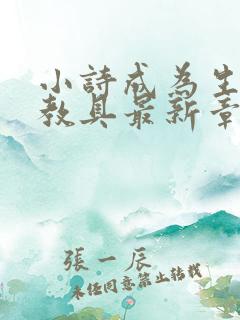 小詩成為生
教具最新章
張一辰
未經同意禁止轉載